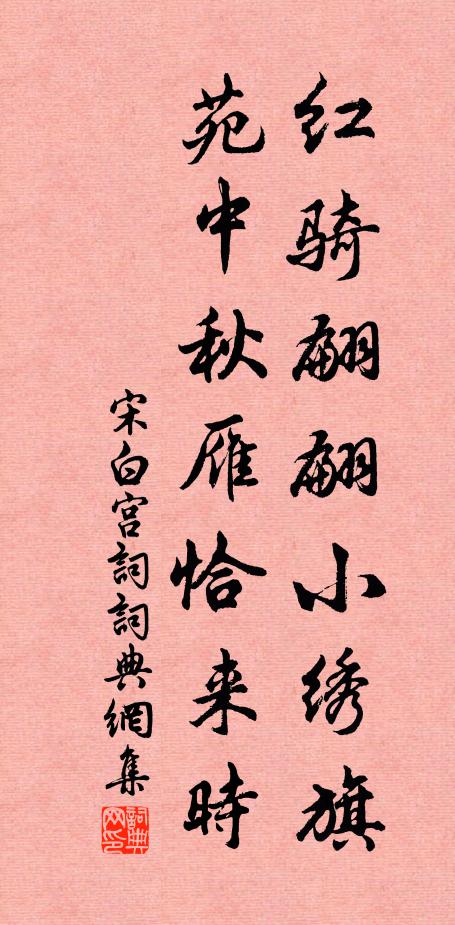 红骑翩翩小绣旗
苑中秋雁恰来時
宋白宫詞詞典網集
詞典网印